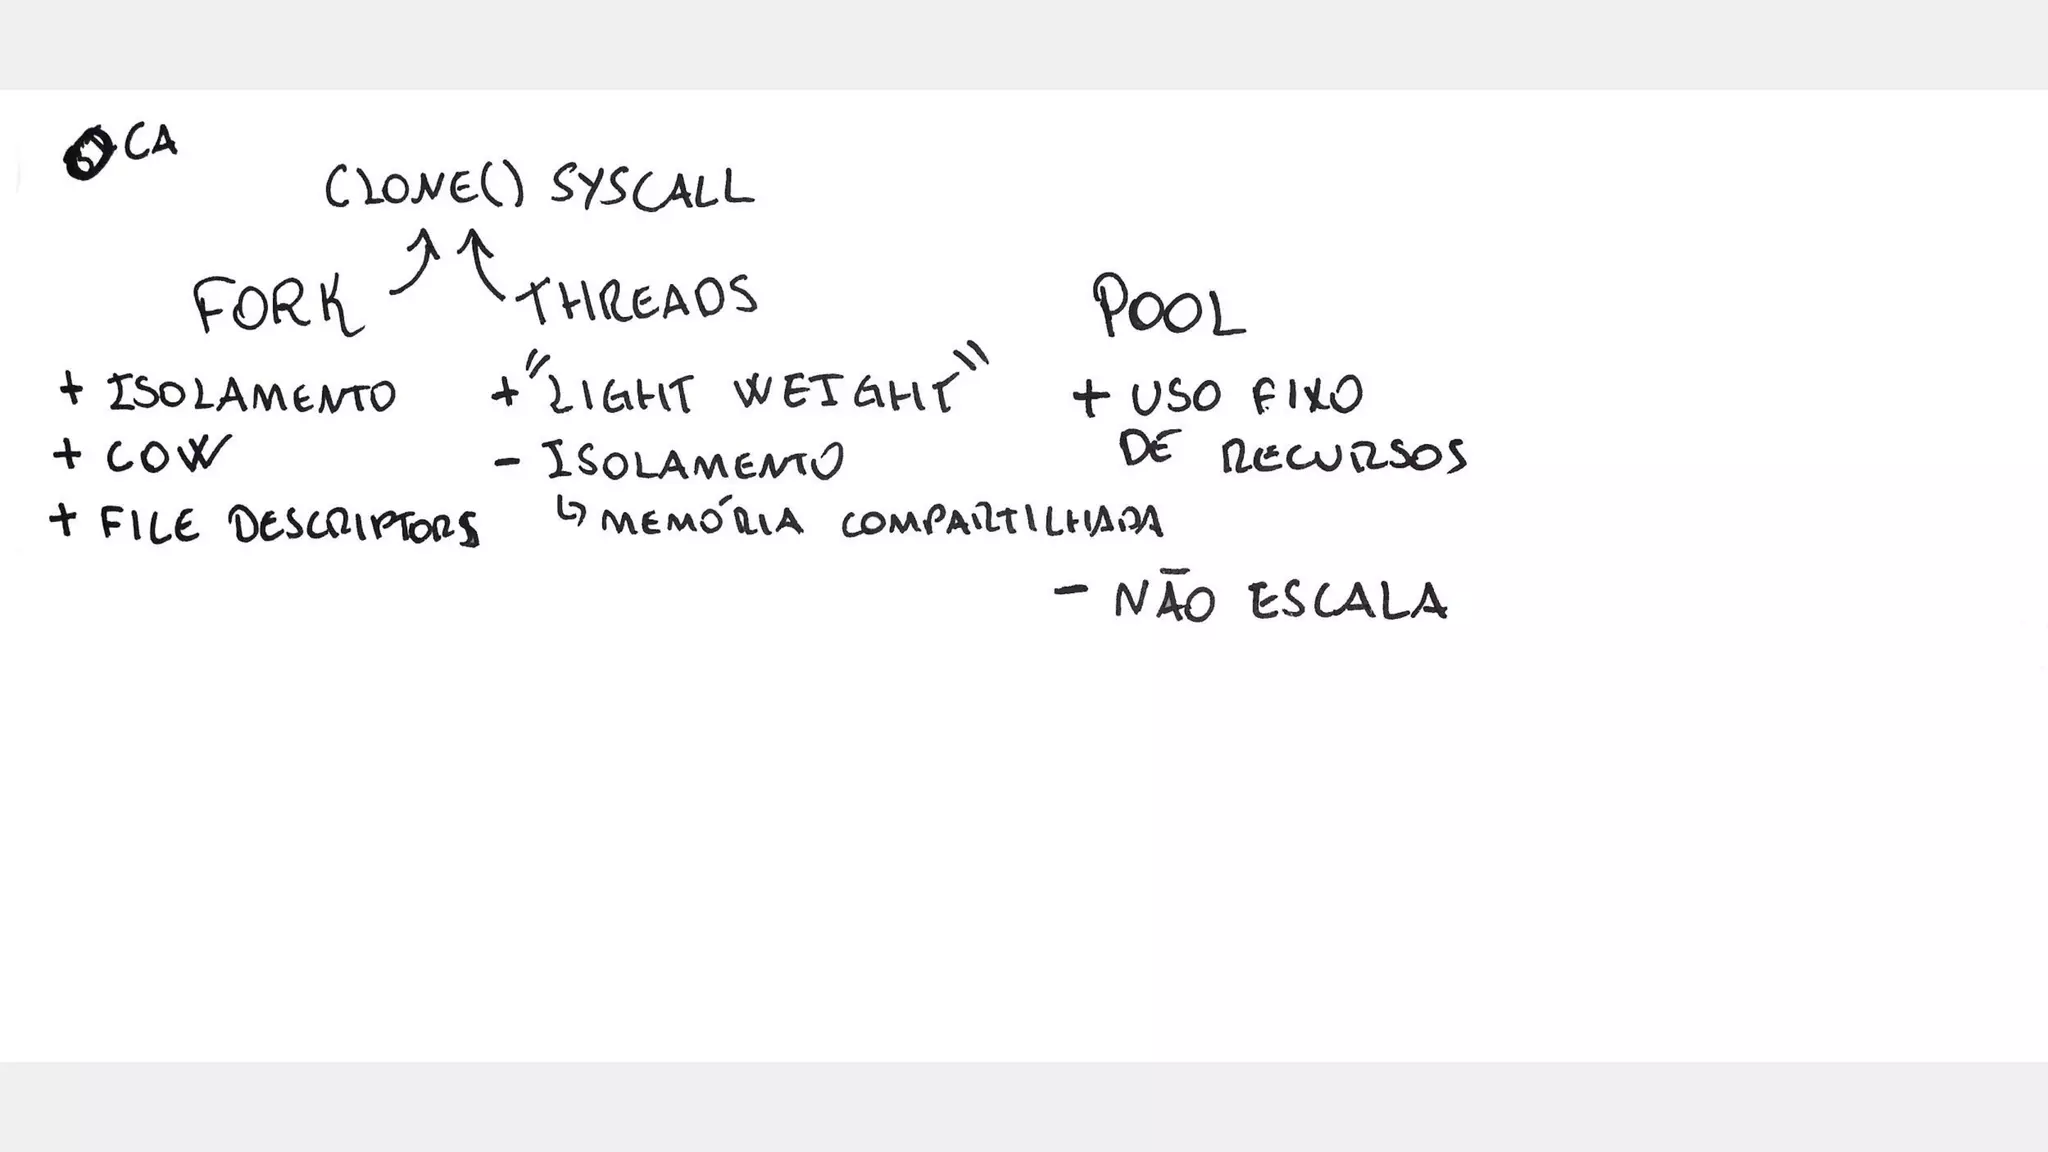 CA
CLONE() SYSCALL
FORK
THREADS
POOL
+ ISOLAMENTO
+ COW
+ FILE DESCRIPTORS
+ "LIGHT WEIGHT"
- ISOLAMENTO
↳ MEMÓRIA COMPARTILHADA
+ USO FIXO
DE RECURSOS
- NÃO ESCALA